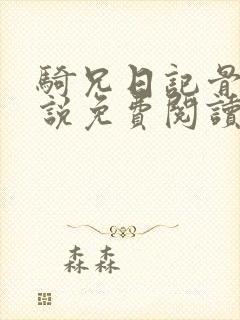 騎兄日記最
說免費閱讀
森森